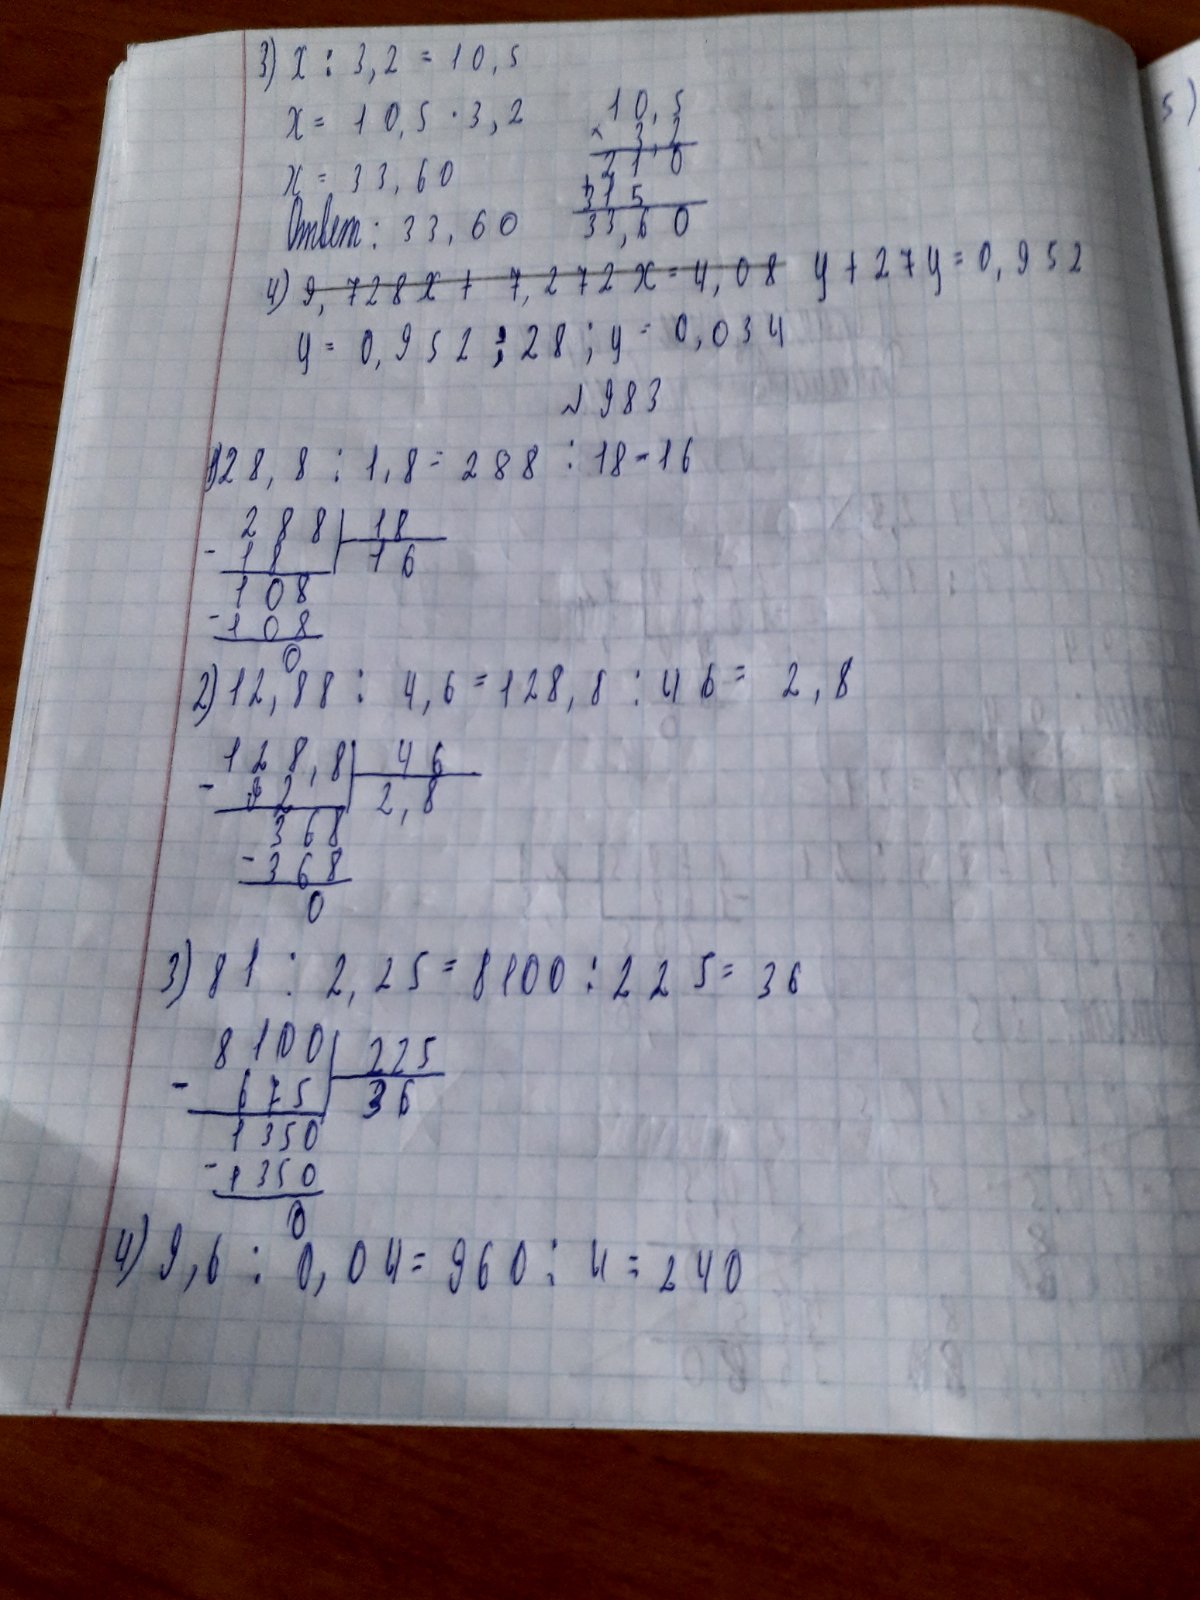 3) x : 3,2 = 10,5
x = 10,5 · 3,2
10,5
× 3,2
x = 33,60
210
+315
Ответ: 33,60
33,60
4) 9,728x + 7,272x = 4,08 y + 27y = 0,952
y = 0,952 : 28 ; y = 0,034
№983
1) 28,8 : 1,8 = 288 : 18 = 16
288 | 18
- 18 | 16
108
- 108
0
2) 12,88 : 4,6 = 128,8 : 46 = 2,8
128,8 | 46
- 92 | 2,8
368
- 368
0
3) 81 : 2,25 = 8100 : 225 = 36
8100 | 225
- 675 | 36
1350
- 1350
0
4) 9,6 : 0,04 = 960 : 4 = 240
5)